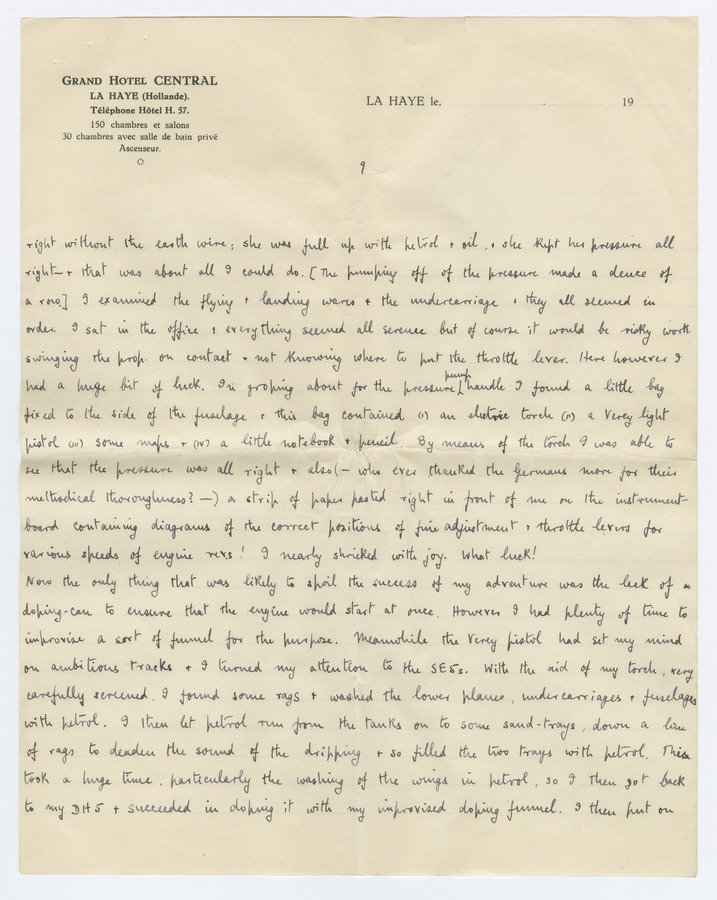 GRAND HOTEL CENTRAL
LA HAYE (Hollande).
Téléphone Hôtel H. 57.
150 chambres et salons
30 chambres avec salle de bain privé
Ascenseur.
LA HAYE le, 19
9
right without the earth wire; she was full up with petrol + oil, + she kept her pressure all
right — + that was about all I could do. [The pumping off of the pressure made a deuce of
a row.] I examined the flying + landing wires + the undercarriage + they all seemed in
order. I sat in the office + everything seemed all serene but of course it would be risky work
swinging the prop. on contact + not knowing where to put the throttle lever. Here however I
had a huge bit of luck. In groping about for the pressure pump handle I found a little bag
fixed to the side of the fuselage + this bag contained (I) an electric torch (II) a Verey light
pistol (III) some maps + (IV) a little notebook + pencil. By means of the torch I was able to
see that the pressure was all right + also (— who ever thanked the Germans more for their
methodical thoroughness? —) a strip of paper pasted right in front of me on the instrument-
board containing diagrams of the correct positions of fine adjustment + throttle levers for
various speeds of engine revs! I nearly shrieked with joy. What luck!
Now the only thing that was likely to spoil the success of my adventure was the lack of a
doping-can to ensure that the engine would start at once. However I had plenty of time to
improvise a sort of funnel for the purpose. Meanwhile the Verey pistol had set my mind
on ambitious tracks + I turned my attention to the SE5s. With the aid of my torch, very
carefully screened, I found some rags + washed the lower planes, undercarriages + fuselages
with petrol. I then let petrol run from the tanks on to some sand-trays, down a line
of rags to deaden the sound of the dripping + so filled the two trays with petrol. This
took a huge time, particularly the washing of the wings in petrol, so I then got back
to my DH5 + succeeded in doping it with my improvised doping funnel. I then put on